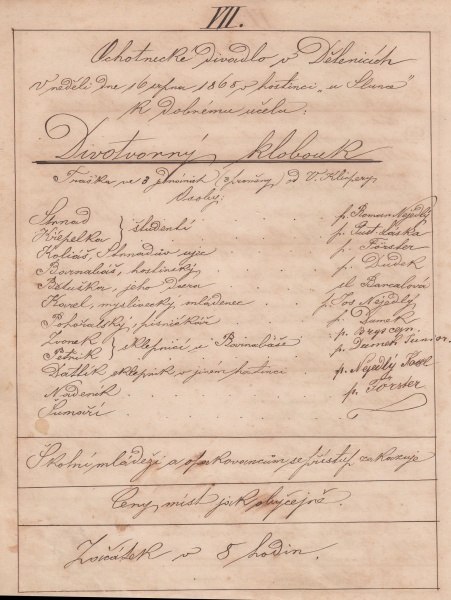 VII.
Ochotnické divadlo v Dětenicích
V neděli dne 16 srpna 1868 v hostinci „u Slunce“
k dobrému účelu:
Divotvorný klobouk
Fraška ve 3 jednáních od V. Klicpery
Osoby:
Strnad } studenti p. Roman Nejedlý
Křepelka p.
Koliáš, Strnadův ujec p. Förster
Barnabáš, hostinský p. Dudek
Bětuška, jeho dcera sl. Barcalová
Karel, myslivecký mládenec p. Jos Nejedlý
Pohořalský, písničkář p. Damek
Zvonek } sklepníci u Barnabáše p.
Petřík p. Damek Junior.
Datlík sklepník v jiném hostinci p. Nejedlý Karel
Nádeník p. Förster
Šumaři
Školní mládeži a opakovancům se přístup zakazuje
Ceny míst jak obyčejně.
Začátek v 8 hodin.